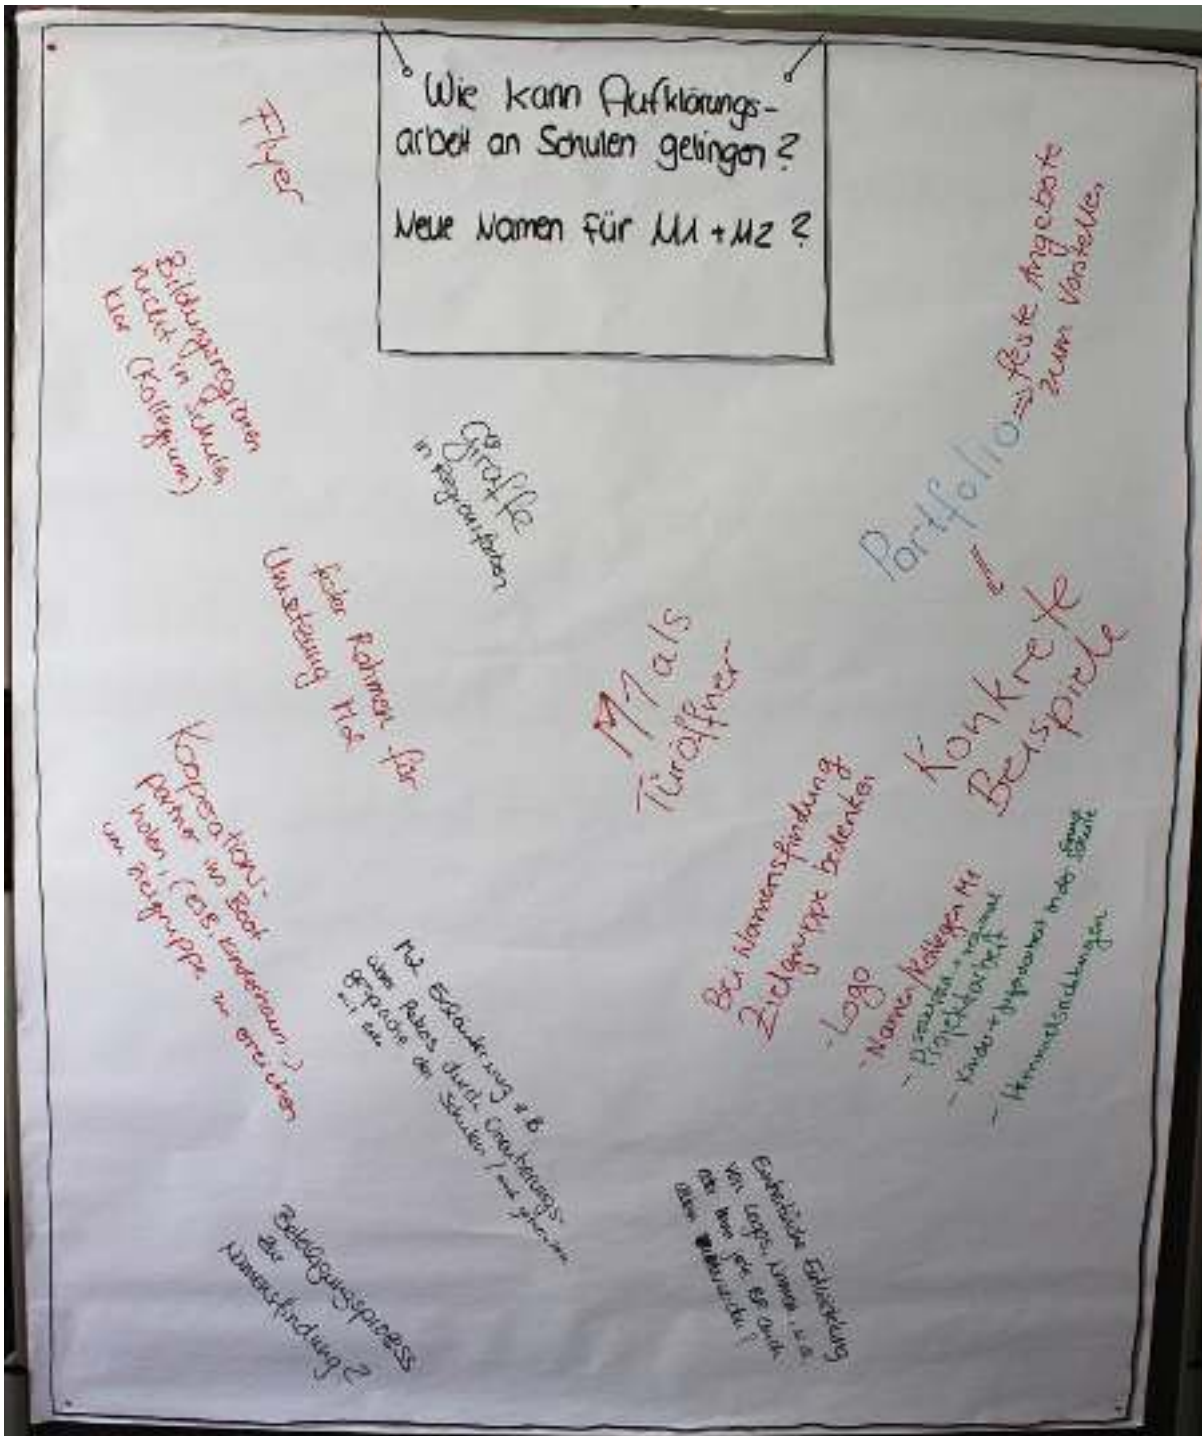 Wie kann Aufklärungs-
arbeit an Schulen gelingen?
Neue Namen für M1 + M2 ?
Flyer
Bildungsregionen
nicht in Schulen
klar (Kollegium)
Giraffe
in Regionsfarben
fester Rahmen für
Umsetzung M2
Kooperations-
partner ins Boot
holen, Kinderschutz
um Zielgruppe zu erreichen
M1 als
Türöffner
Portfolio => feste Angebote
zum Vorstellen
Konkrete
Beispiele
Bei Namensfindung
Zielgruppe bedenken
- Logo
- Namen/Kollegen M1
- Prävention + regional
Projektarbeit
- Kinder + Jugendarbeit in der Schule
- Himmelsrichtungen
M2
durch Orientierungs-
gespräche der Schulen
Beteiligungsprozess
zur
Namensfindung?
Einheitliche Entwicklung
von Logos, Namen, u.a.
oder kann jede BR auch
allein entscheiden?